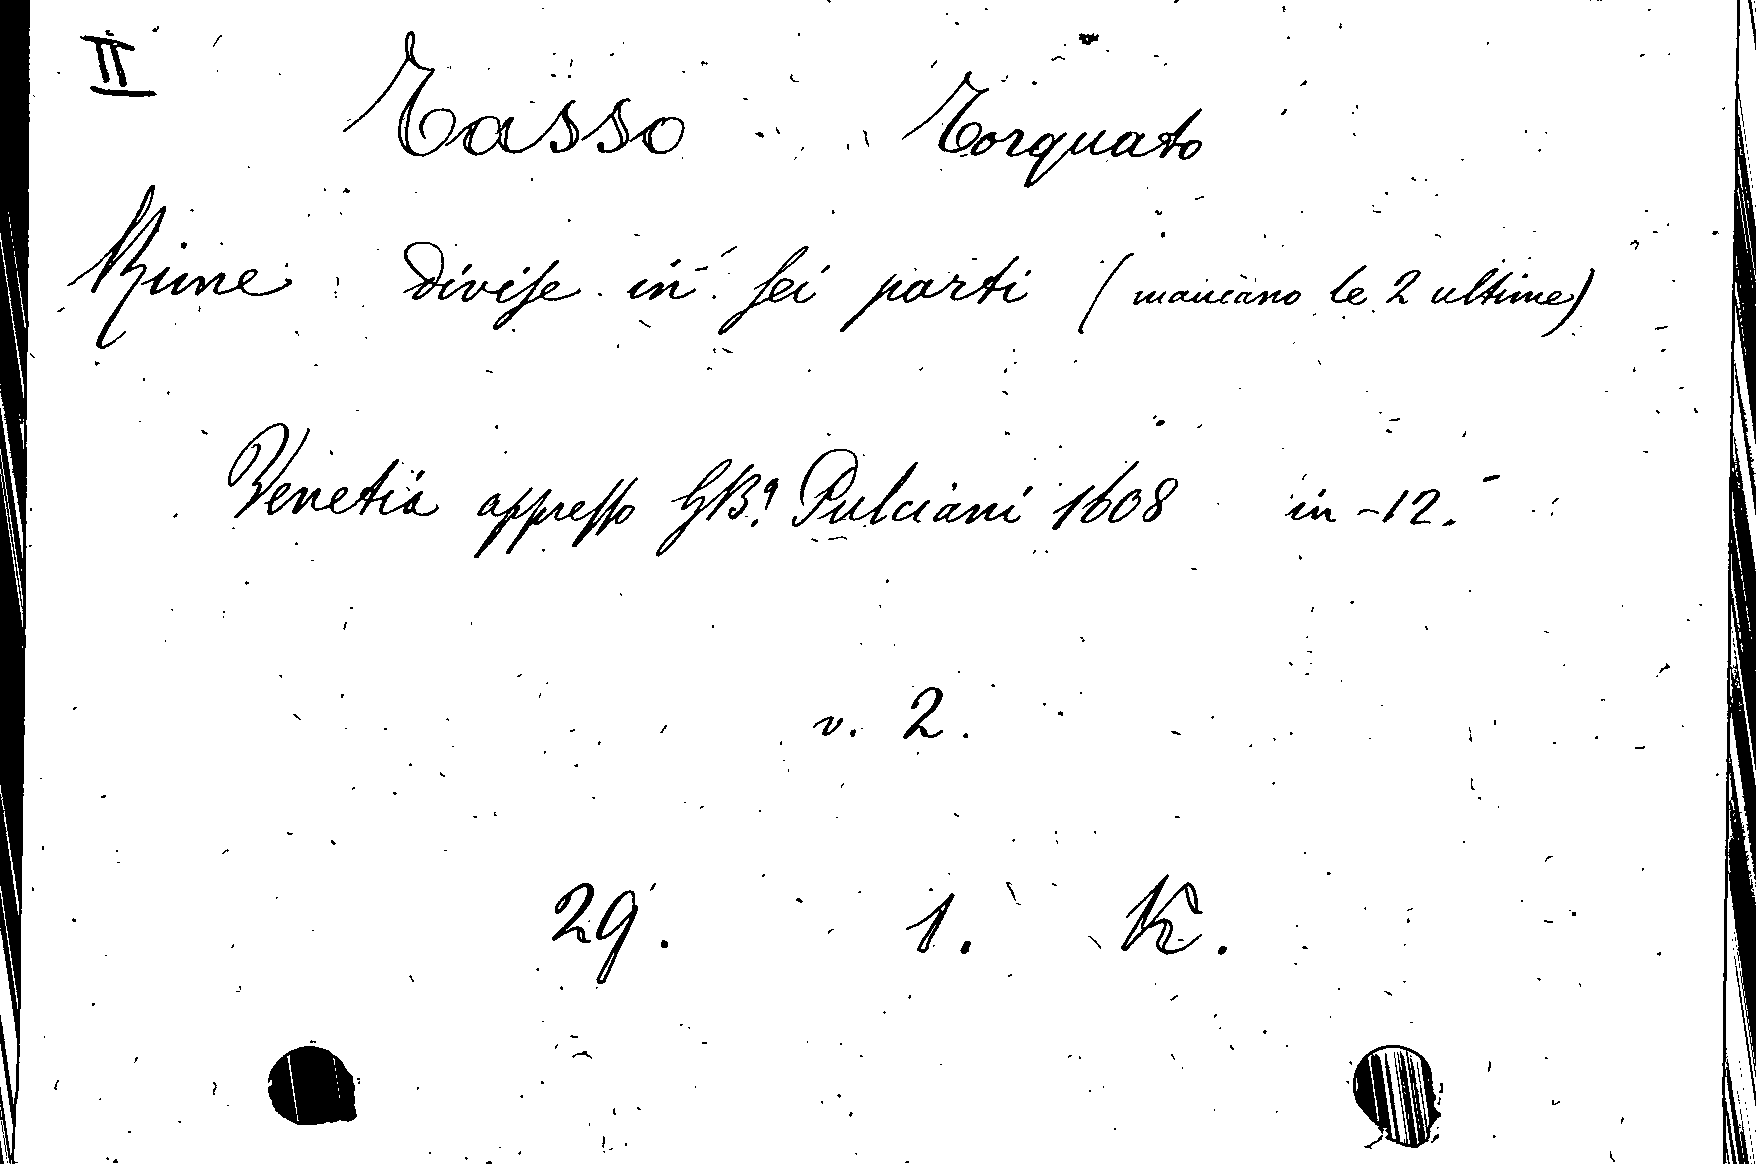 II
Tasso Torquato
Rime divise in sei parti (mancano le 2 ultime)
Venetia appresso GB.a Pulciani 1608 in -12.
v. 2.
29. 1. K.